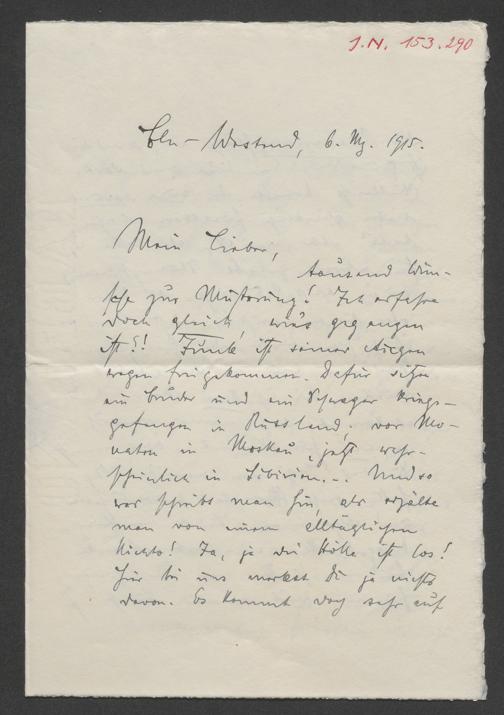 J.N. 153.290
Bln-Westend, 6. Mg. 1915.
Mein Lieber,
tausend Wün-
sche zur Musterung! Ich erfahre
doch gleich, wie's gegangen
ist?! Funke ist seiner Augen
wegen freigekommen. Dafür sitzen
ein Bruder und ein Schwager kriegs-
gefangen in Russland; vor Mo-
naten in Moskau, jetzt wahr-
scheinlich in Sibirien...
man hin, als erzählte
man von einem alltäglichen
Nichts! Ja, ja die Hölle ist los!
Hier bei uns merkst Du ja nichts
davon. Es kommt doch sehr auf